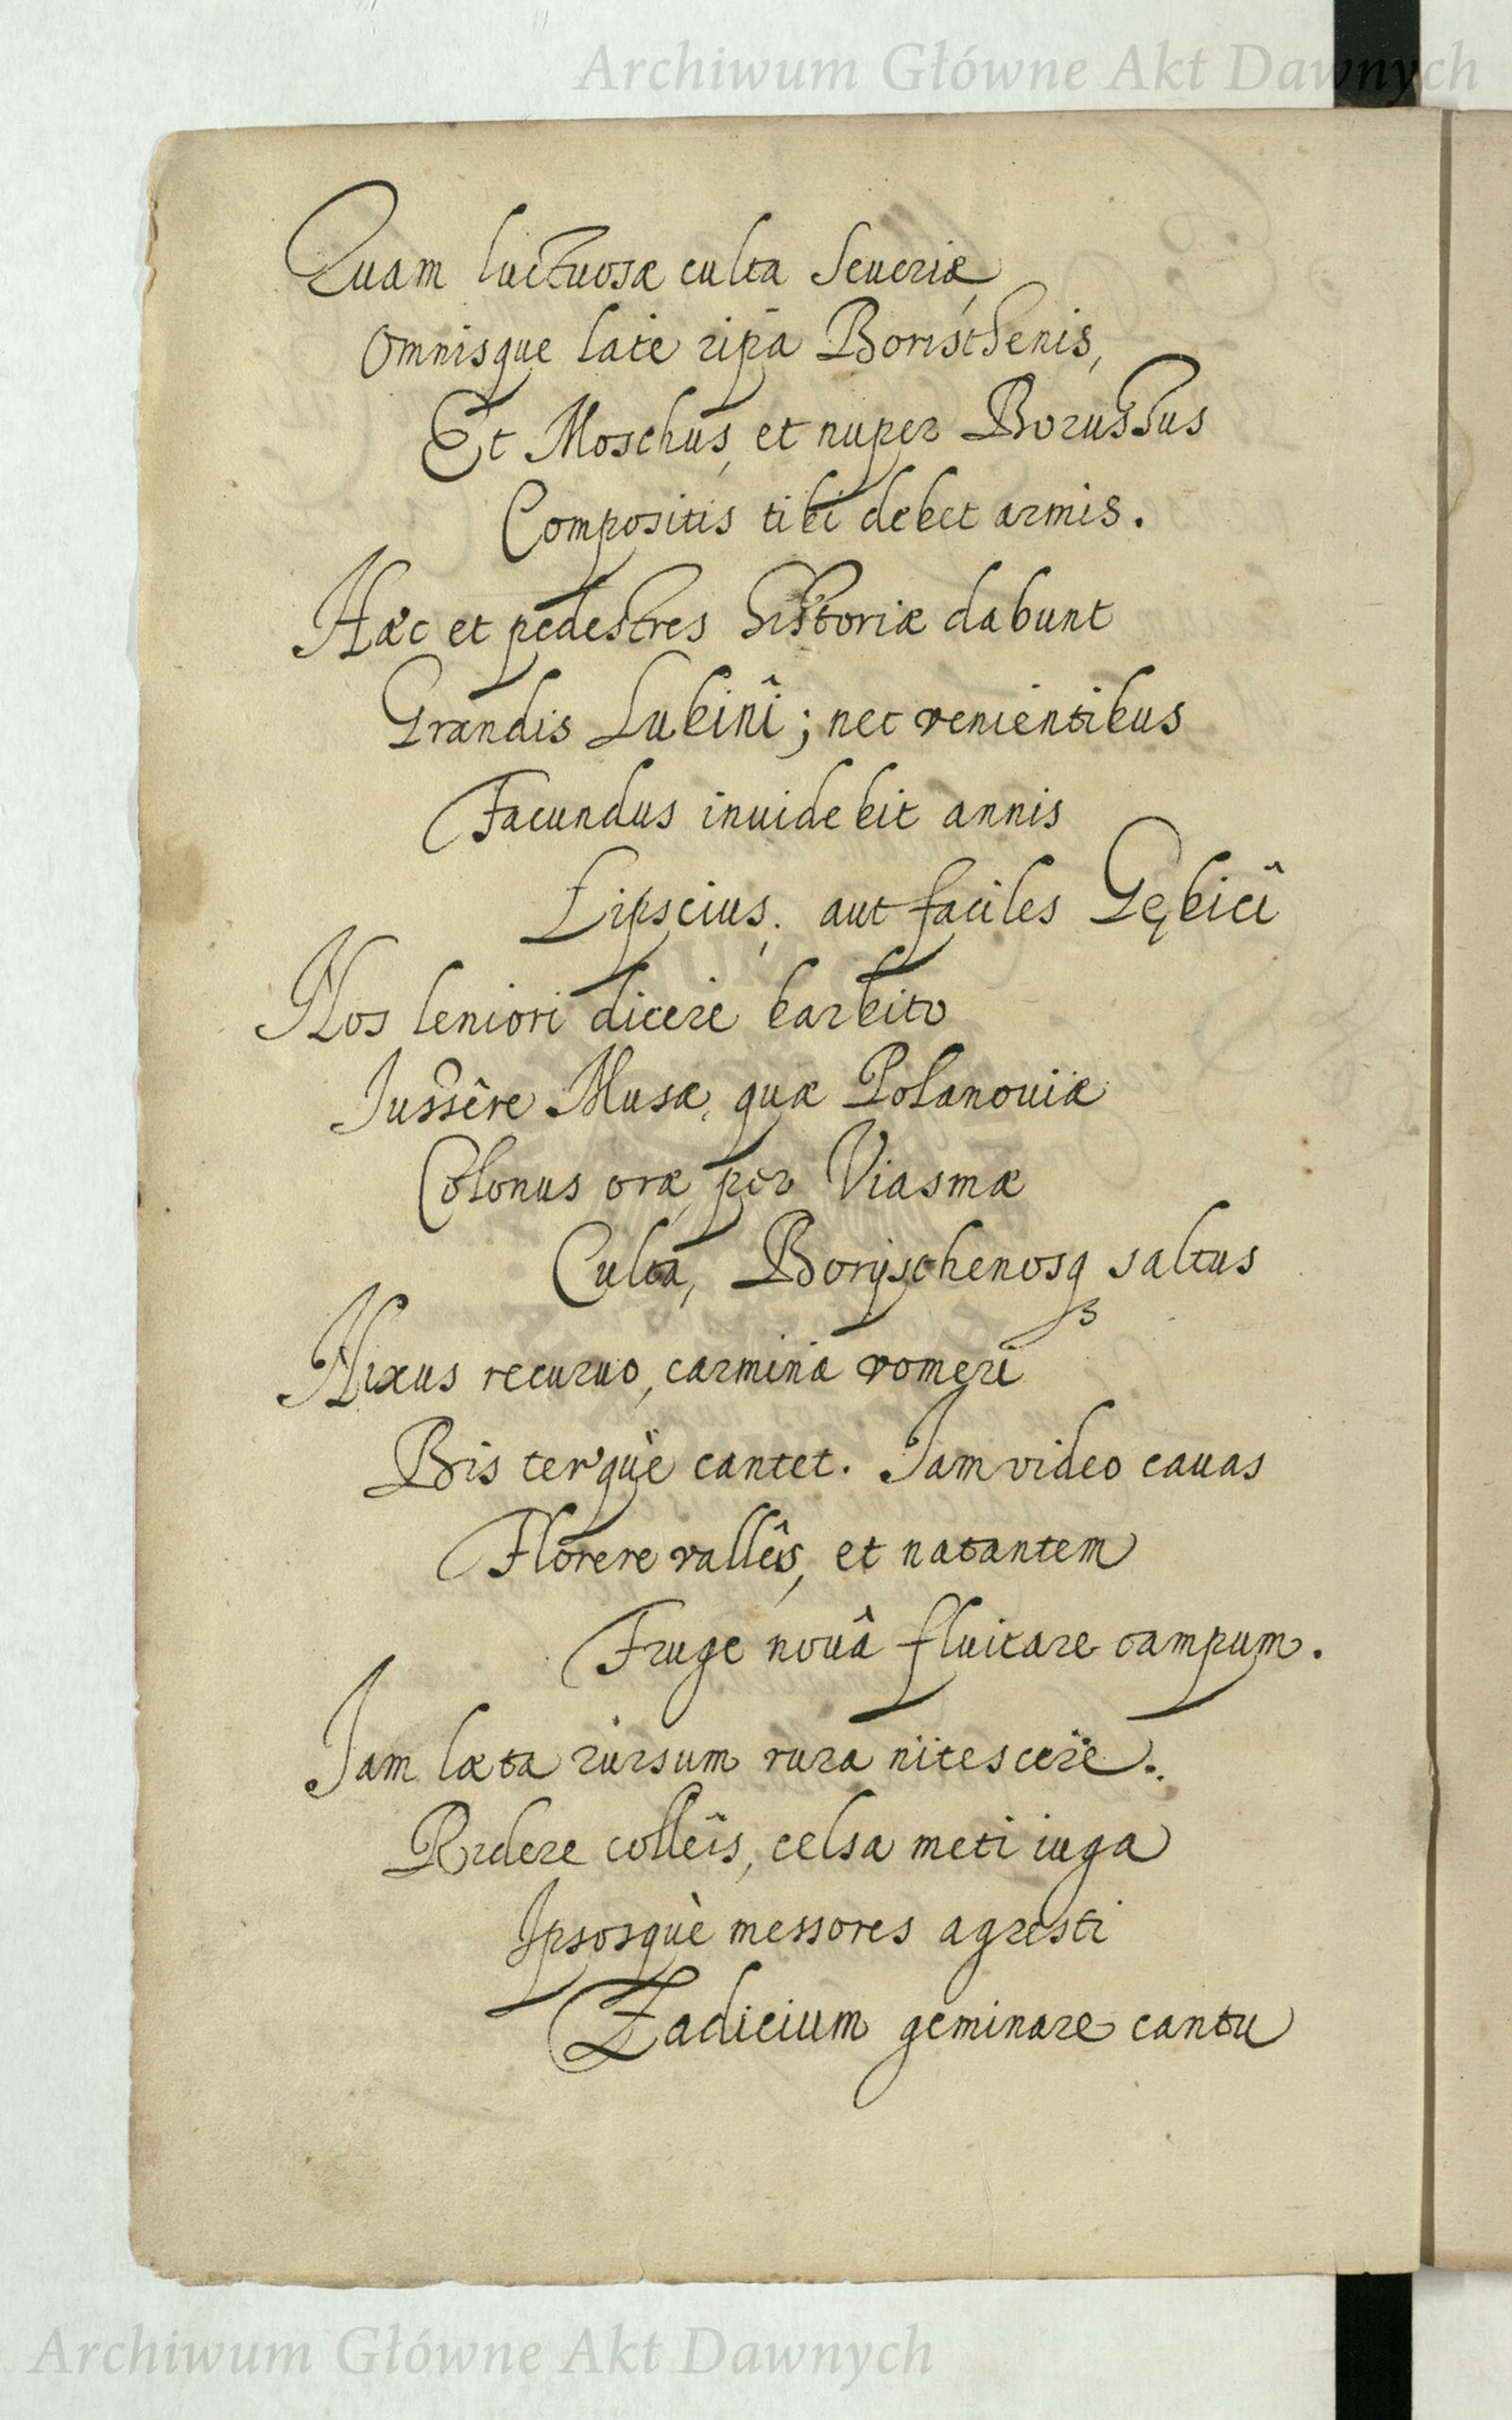 Archiwum Główne Akt Dawnych
Quam luctuosæ culta Seueriæ,
Omnisque late ripa Boristhenis,
Et Moschus, et nuper Borussus
Compositis tibi debet armis.
Hæc et pedestres historiæ dabunt
Grandis Lubinî; nec venientibus
Facundus inuidebit annis
Lipscius, aut faciles Gębicî
Nos leniori dicere barbito
Jussêre Musæ, quæ Polanouiæ
Colonus oræ, per Viasmæ
Culta, Borijsthenosq₃ saltus
Nixus recuruo, carmina vomeri
Bis terque cantet. Jam video cauas
Florere vallêis, et natantem
Fruge nouâ fluitare campum.
Jam læta rursum rura nitescere.
Ridere collêis, celsa meti iuga
Ipsosquè messores agresti
Zadicium geminare cantu
Archiwum Główne Akt Dawnych